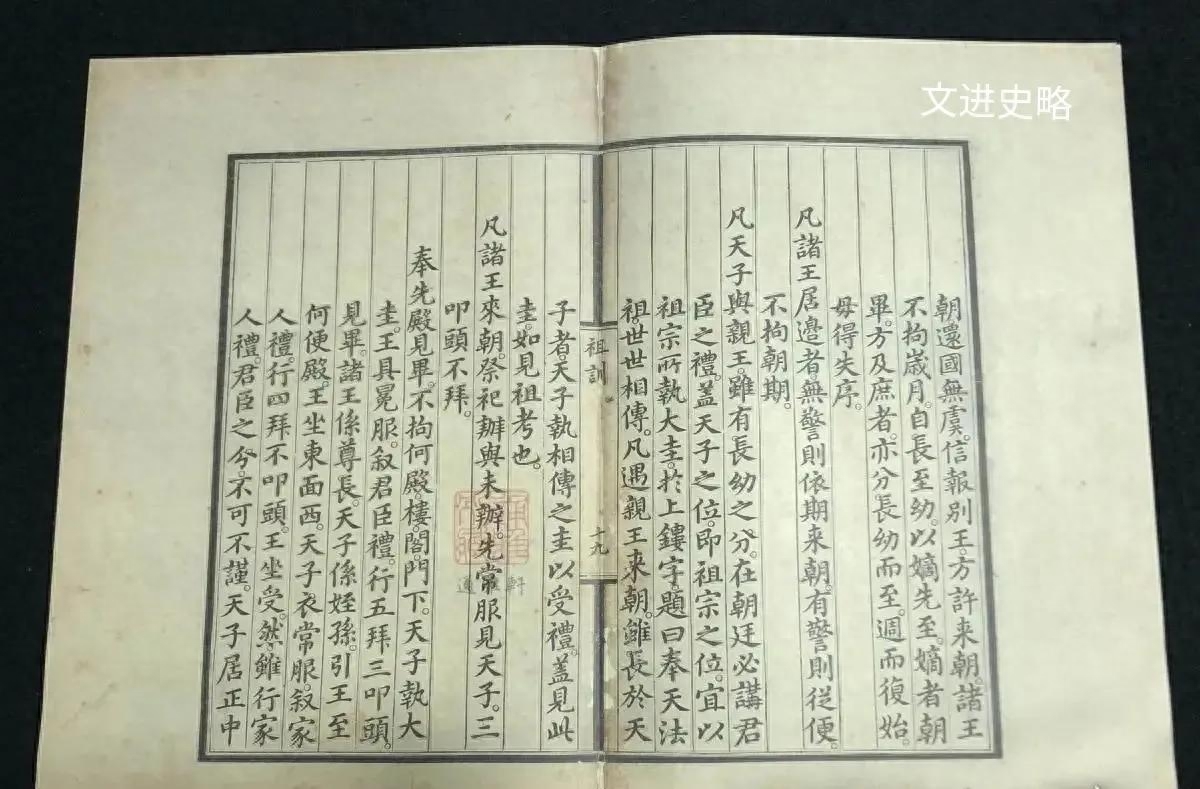 文进史略
朝還國無虞。信報別王。方許来朝。諸王
不拘歲月。自長至幼。以嫡先至。嫡者朝
畢。方及庶者。亦分長幼而至。週而復始。
毋得失序。
凡諸王居邊者。無警則依期来朝。有警則從便。
不拘朝期。
凡天子與親王。雖有長幼之分。在朝廷必講君
臣之禮。蓋天子之位。即祖宗之位。宜以
祖宗所執大圭。於上鏤字。題曰奉天法
祖。世世相傳。凡遇親王来朝。雖長於天
祖訓
十九
子者。天子執相傳之圭以受禮。蓋見此
圭。如見祖考也。
凡諸王來朝。祭祀辦與未辦。先常服見天子。三
叩頭不拜。
奉先殿見畢。不拘何殿。樓。閣。門下。天子執大
圭。王具冕服。叙君臣禮。行五拜三叩頭。
見畢。諸王係尊長。天子係姪孫。引王至
何便殿。王坐東面西。天子衣常服。叙家
人禮。行四拜不叩頭。王坐受。然雖行家
人禮。君臣之分。不可不謹。天子居正中